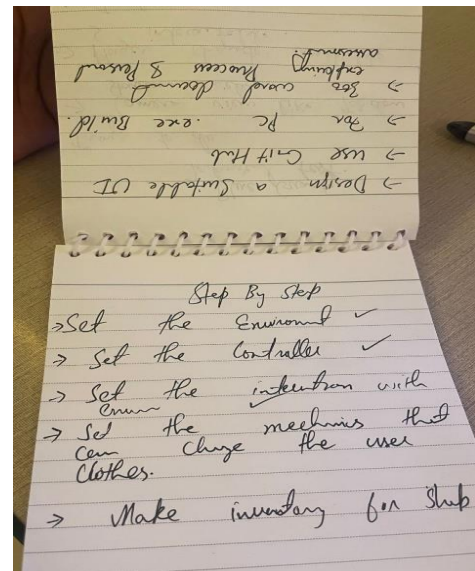 → Design a Suitable UI
→ use Git Hub
→ For PC .exe Build.
→ 300 word document
explaing Proccess & Personal
assesment.
Step By Step
→ Set the Enviroment ✓
→ Set the Controller ✓
→ Set the with
enum ✓
→ Set the mechnics that
can change the user
Clothes.
→ Make inventory for